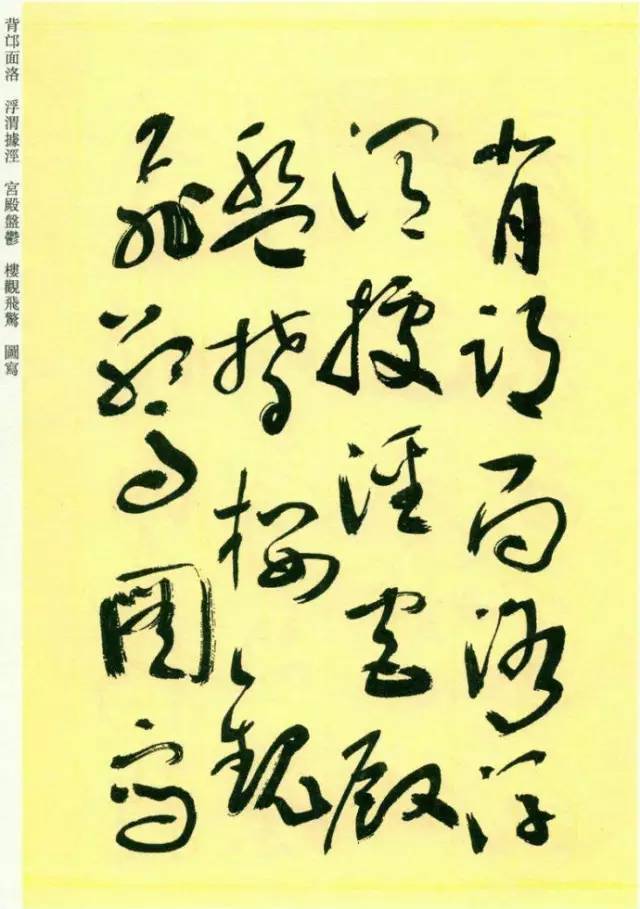 背邙面洛浮
渭據涇宮殿
盤鬱樓觀
飛驚圖寫
背邙面洛 浮渭據涇 宮殿盤鬱 樓觀飛驚 圖寫